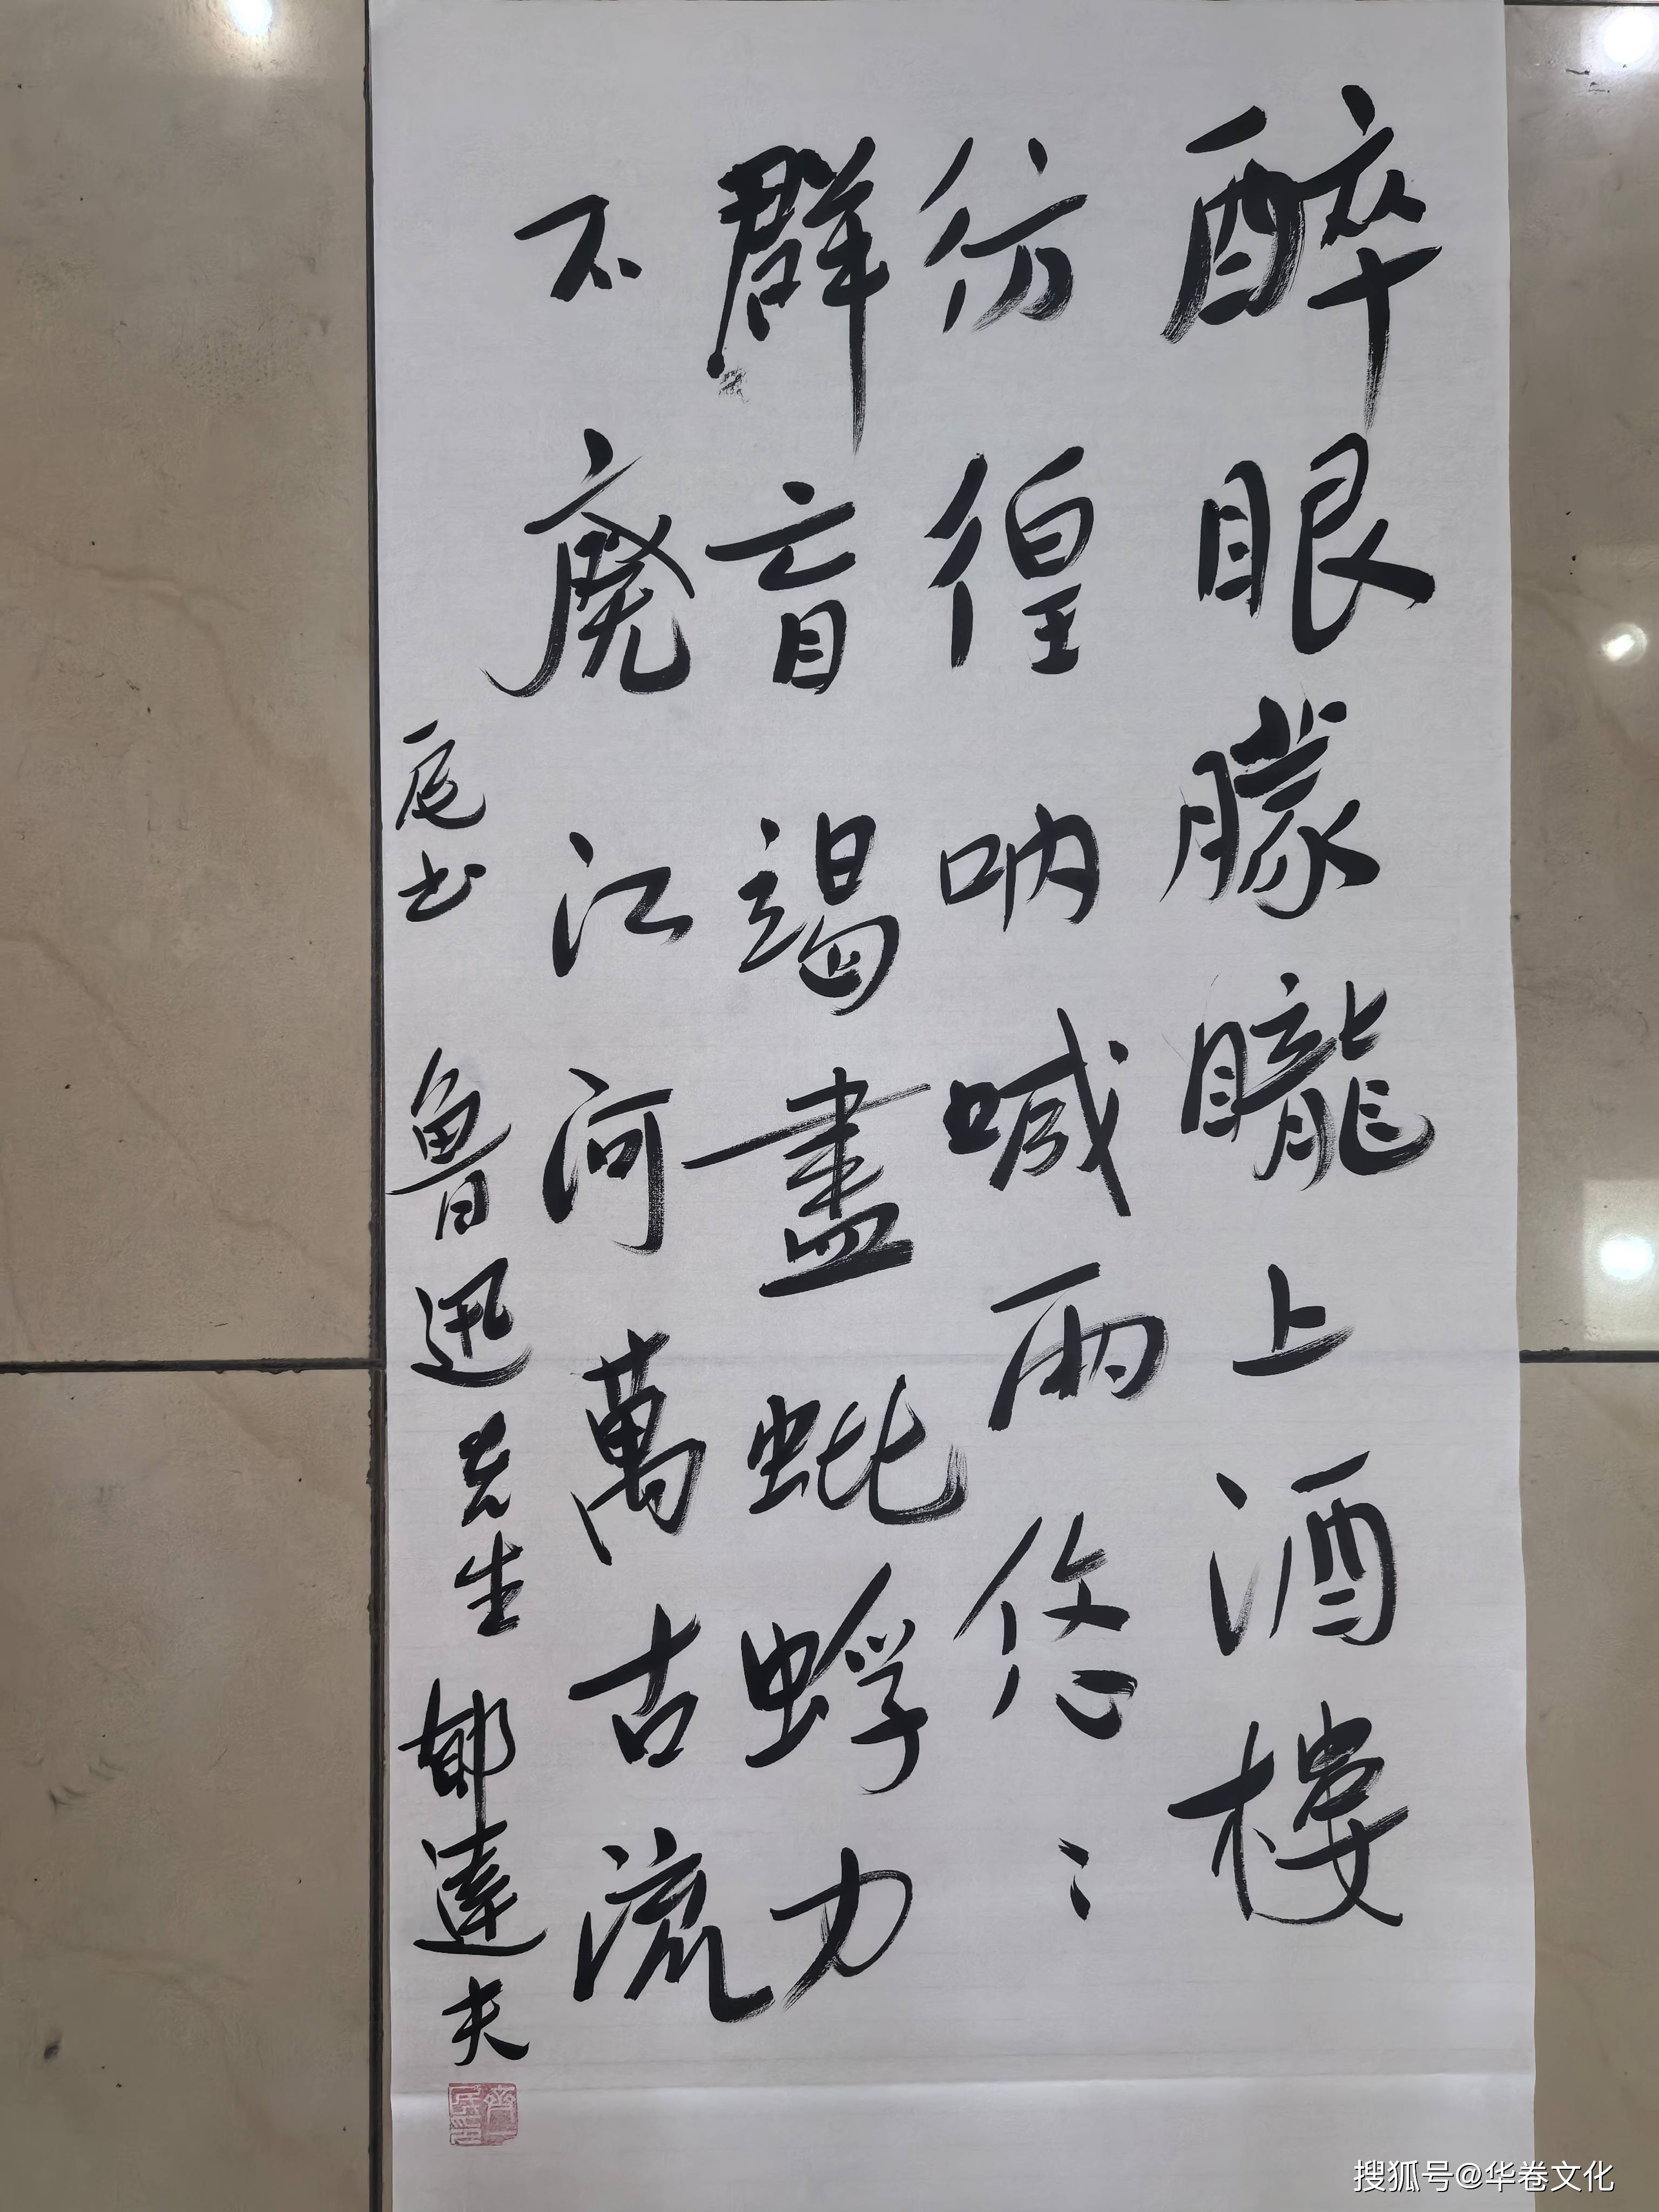 醉眼朦朧上酒樓
彷徨吶喊兩悠々
群盲竭盡蚍蜉力
不廢江河萬古流
书 魯迅先生 郁達夫
搜狐号@华卷文化